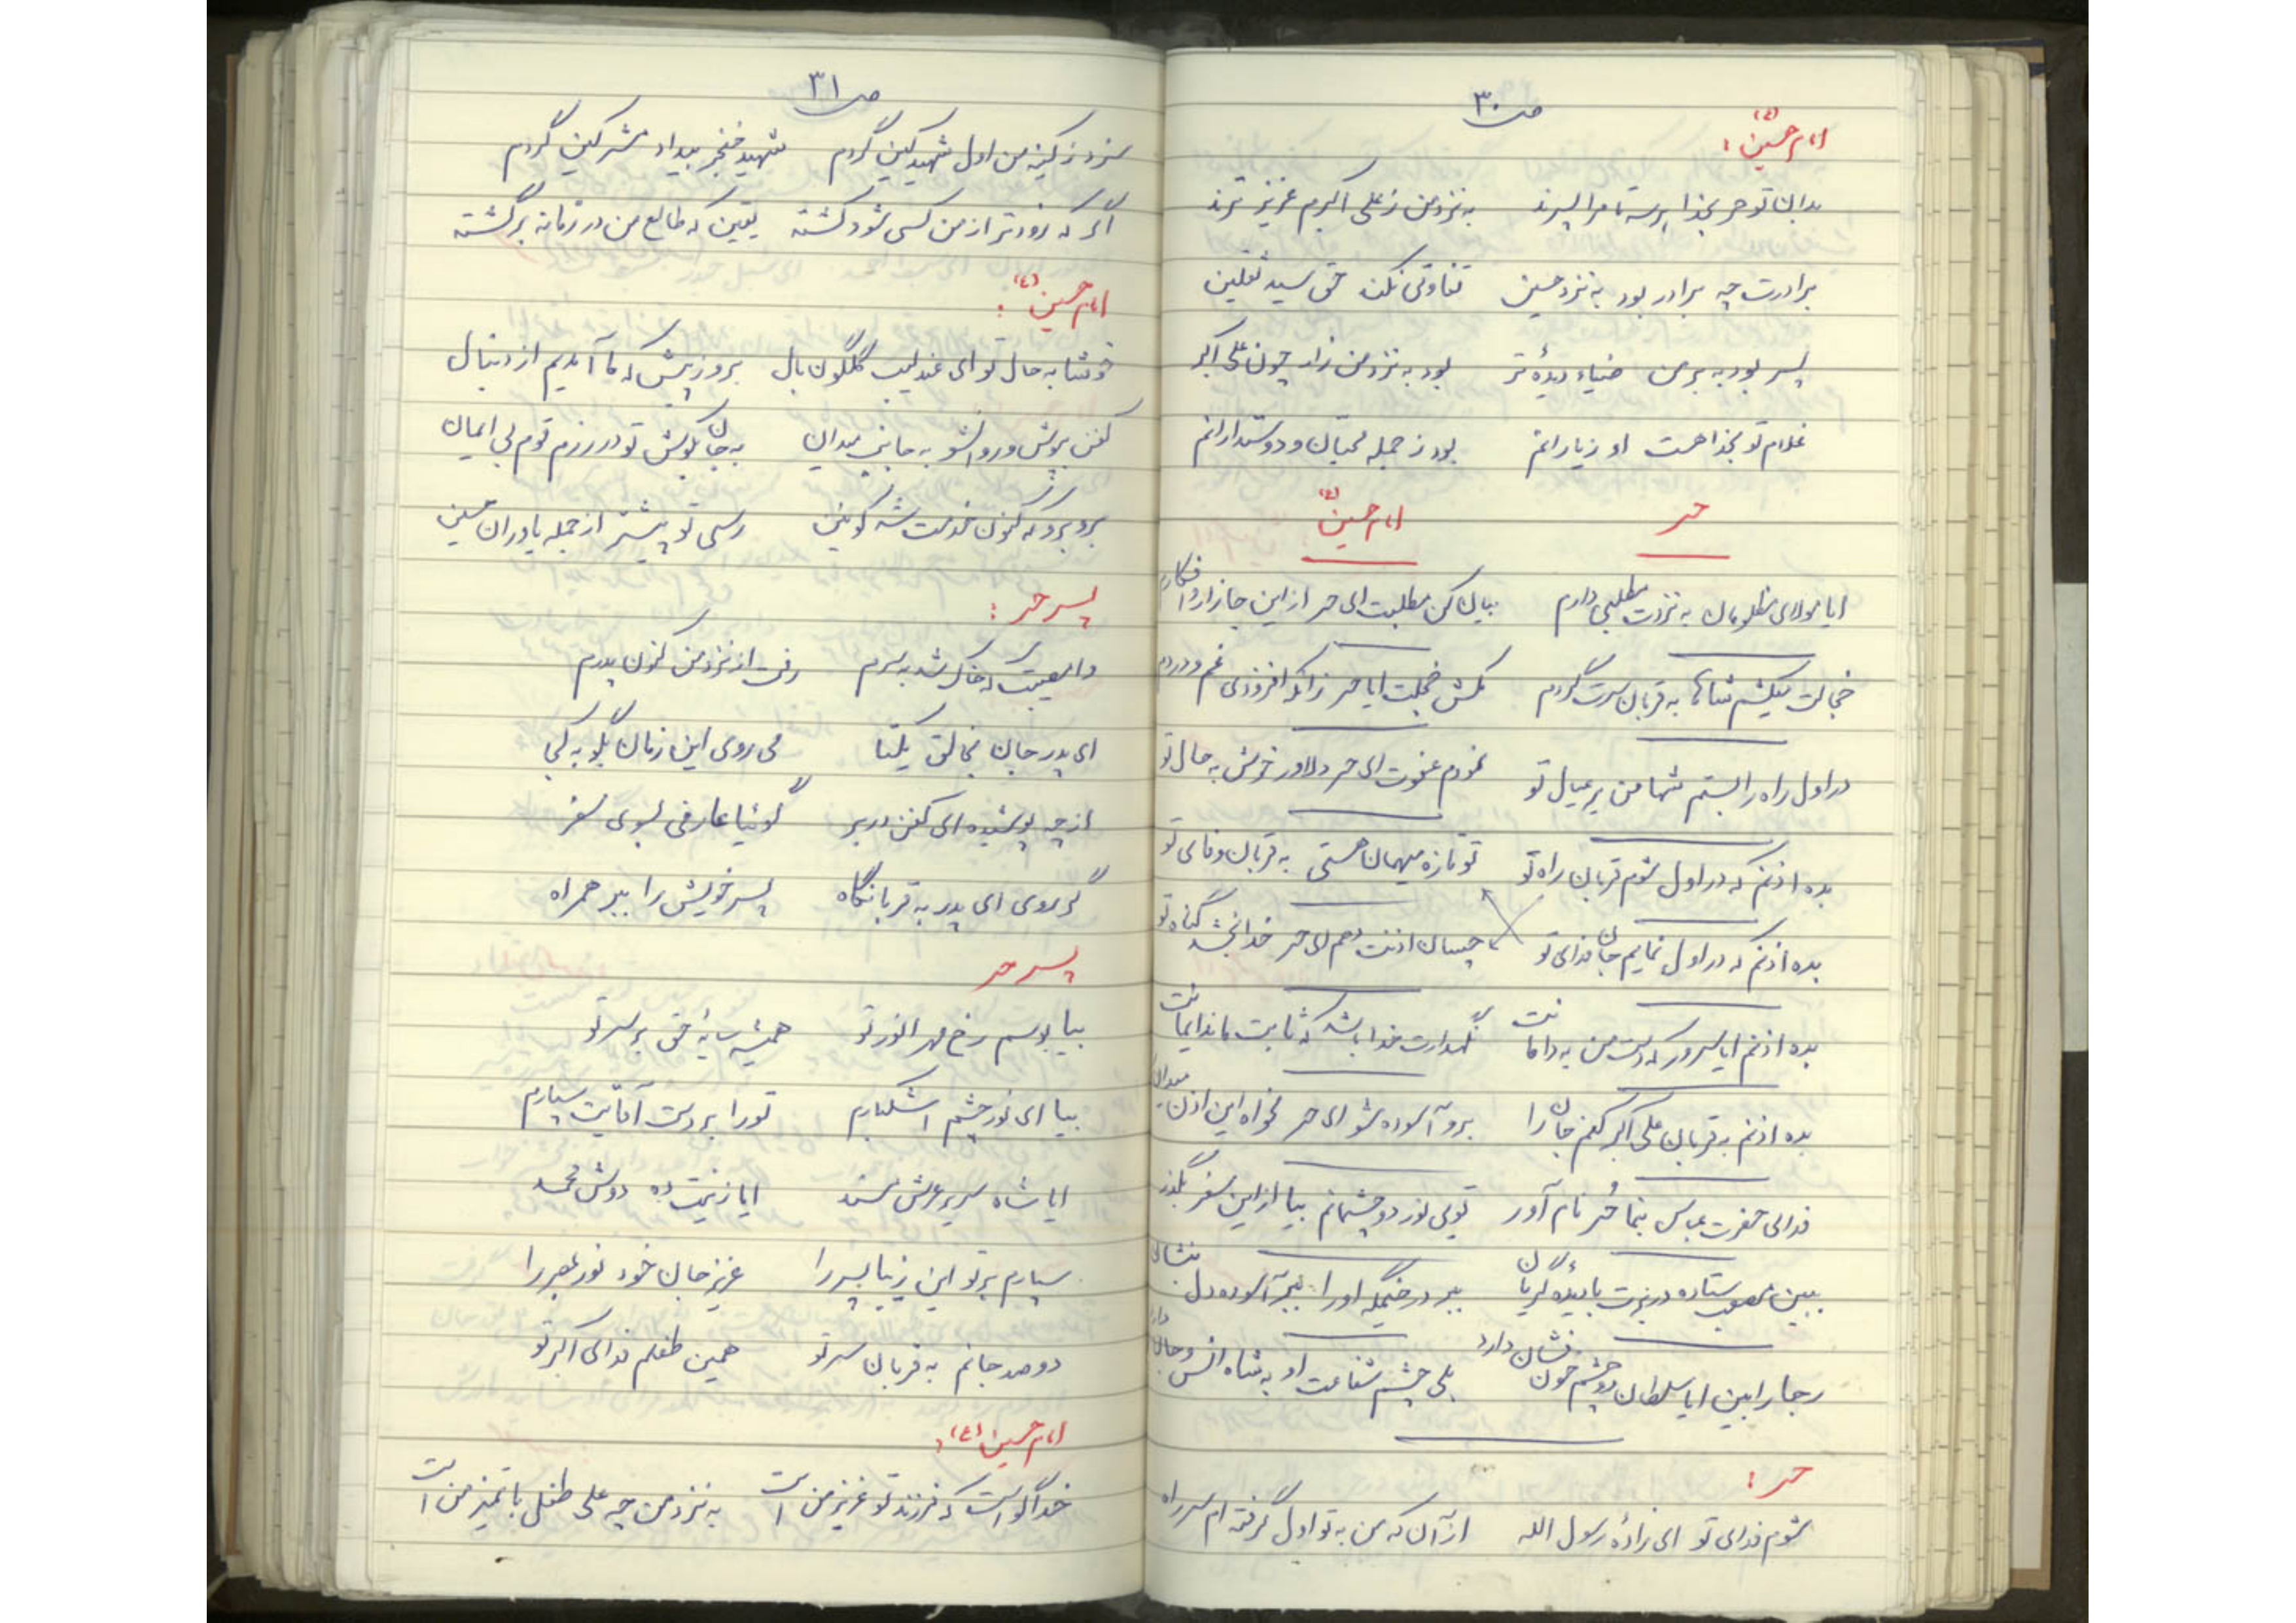 ص ۳۰
امام حسین (ع) :
بدان تو حر بخدا هر سه تا مرا پسرند به نزد من ز علی اکبرم عزیزترند
برادرت چه برادر بود به نزد حسین تفاوتی نکند حق سید ثقلین
پسر بود به بر من ضیاء دیدهٔ تر بود به نزد من زار چون علی اکبر
غلام تو بخدا هست او ز یارانم بود ز جمله محبان و دوستدارانم
حر امام حسین (ع)
ایا مولای مظلومان به نزدت مطلبی دارم بیان کن مطلبت ای حر از این جا زار و افکارم
خجالت میکشم شاها به قربان سرت گردم مکش خجلت ایا حر زانکه افزودی غم و دردم
در اول راه را بستم شها من بر عیال تو نمودم عفوت ای حر دلاور خوش به حال تو
بده اذنم که در اول شوم قربان راه تو تو تازه میهمان هستی به قربان وفای تو
بده اذنم که در اول نمایم جان فدای تو چسان اذنت دهم ای حر خدا بخشد گناه تو
بده اذنم ایا سرور که دست من به دامانت نگهدارت خدا باشد که ثابت ماند ایمانت
بده اذنم به قربان علی اکبر کنم جان را برو آسوده شو ای حر مخواه این اذن میدان
فدای حضرت عباس بنما حُر نام آور تویی نور دو چشمانم بیا از این سفر بگذر
ببین مصعب ستاده در برت با دیدهٔ گریان ببر در خیمگه او را ببر آسوده دل بنشان
رجا را بین ایا سلطان دو چشم خون فشان دارد بلی چشم شفاعت او به شاه انس و جان دارد
حر :
شوم فدای تو ای زادهٔ رسول الله از آن که من به تو اول گرفته ام سر راه
ص ۳۱
سزد ز کینه من اول شهید کین گردم شهید خنجر بیداد مشرکین گردم
اگر که زودتر از من کسی شود کشته یقین که طالع من در زمانه برگشته
امام حسین (ع) :
خوشا به حال تو ای عندلیب گلگون بال برو ز پیش که ما آمدیم از دنبال
کفن بپوش و روان شو به جانب میدان به جان بکوش تو در رزم قوم بی ایمان
برو برو که کنون خدمت شه کونین رسی تو پیشتر از جمله یاوران حسین
پسر حر :
وامصیبت که خاک شد به سرم رفت از نزد من کنون پدرم
ای پدر جان بخالق یکتا می روی این زمان بگو به کجا
از چه پوشیده ای کفن در بر گوئیا عازمی بسوی سفر
گر روی ای پدر به قربانگاه پسر خویش را ببر همراه
پسر حر
بیا بوسم رخ مهر انور تو همیشه سایهٔ حق بر سر تو
بیا ای نور چشم اشکبارم تو را بر دست آقایت سپارم
ایا شاه سریر عرش مسند ایا زینت ده دوش محمد
سپارم بر تو این زیبا پسر را عزیز جان خود نور بصر را
دو صد جانم به قربان سر تو همین طفلم فدای اکبر تو
امام حسین (ع) :
خدا گواست که فرزند تو عزیز من است به نزد من چه علی طفل با تمیز من است